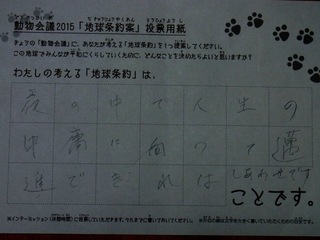 動物会議2015「地球条約案」投票用紙
きょうの「動物会議」に、あなたが考える「地球条約」を1つ提案してください。
この地球でみんなが平和にくらしていくために、どんなことを決めたらよいと思いますか?
わたしの考える「地球条約」は、
夜の中で人生の
中庸に向って邁
進できれば
しあわせです
ことです。